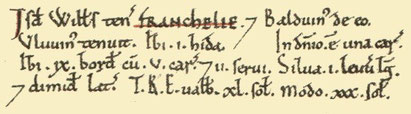 Isđ Wills ten̄ FRANCHELIE. ⁊ Balduin' de eo.
Vluuin' tenuit. Ibi .i. hida. In dn̄io .ē una car̄.
Ibi .ix. bord̄ cū .v. car̄. ⁊ .ii. serui. Silua .i. leuu̅ lg̅.
⁊ dimid̄ lat̄. T.R.E. ualb̄ .xl. sol̄. Modo .xxx. sol̄.